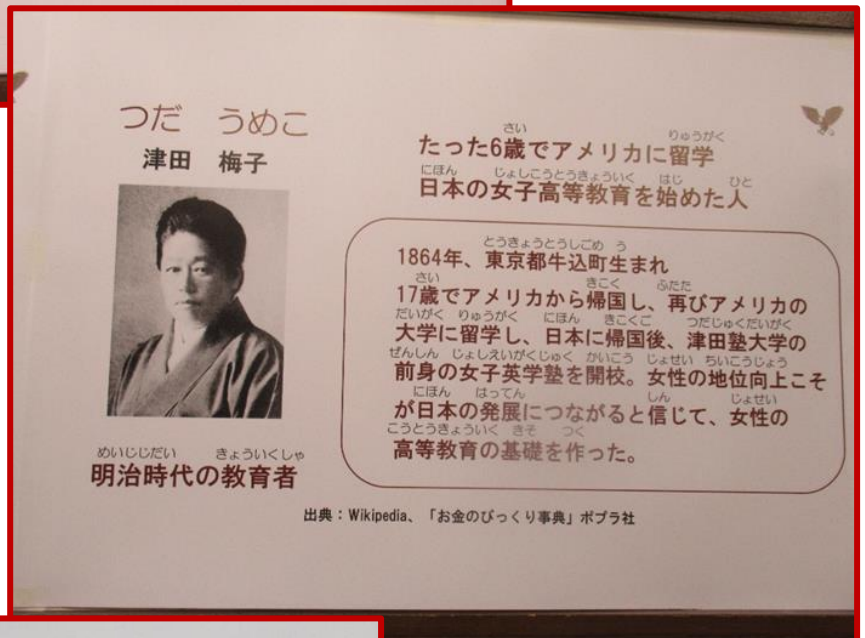 つだ うめこ
津田 梅子
めいじじだい きょういくしゃ
明治時代の教育者
さい りゅうがく
たった6歳でアメリカに留学
にほん じょしこうとうきょういく はじ ひと
日本の女子高等教育を始めた人
とうきょうとうしごめ う
1864年、東京都牛込町生まれ
さい きこく ふたた
17歳でアメリカから帰国し、再びアメリカの
だいがく りゅうがく にほん きこくご つだじゅくだいがく
大学に留学し、日本に帰国後、津田塾大学の
ぜんしん じょしえいがくじゅく かいこう じょせい ちいこうじょう
前身の女子英学塾を開校。女性の地位向上こそ
にほん はってん しん じょせい
が日本の発展につながると信じて、女性の
こうとうきょういく きそ つく
高等教育の基礎を作った。
出典：Wikipedia、「お金のびっくり事典」ポプラ社